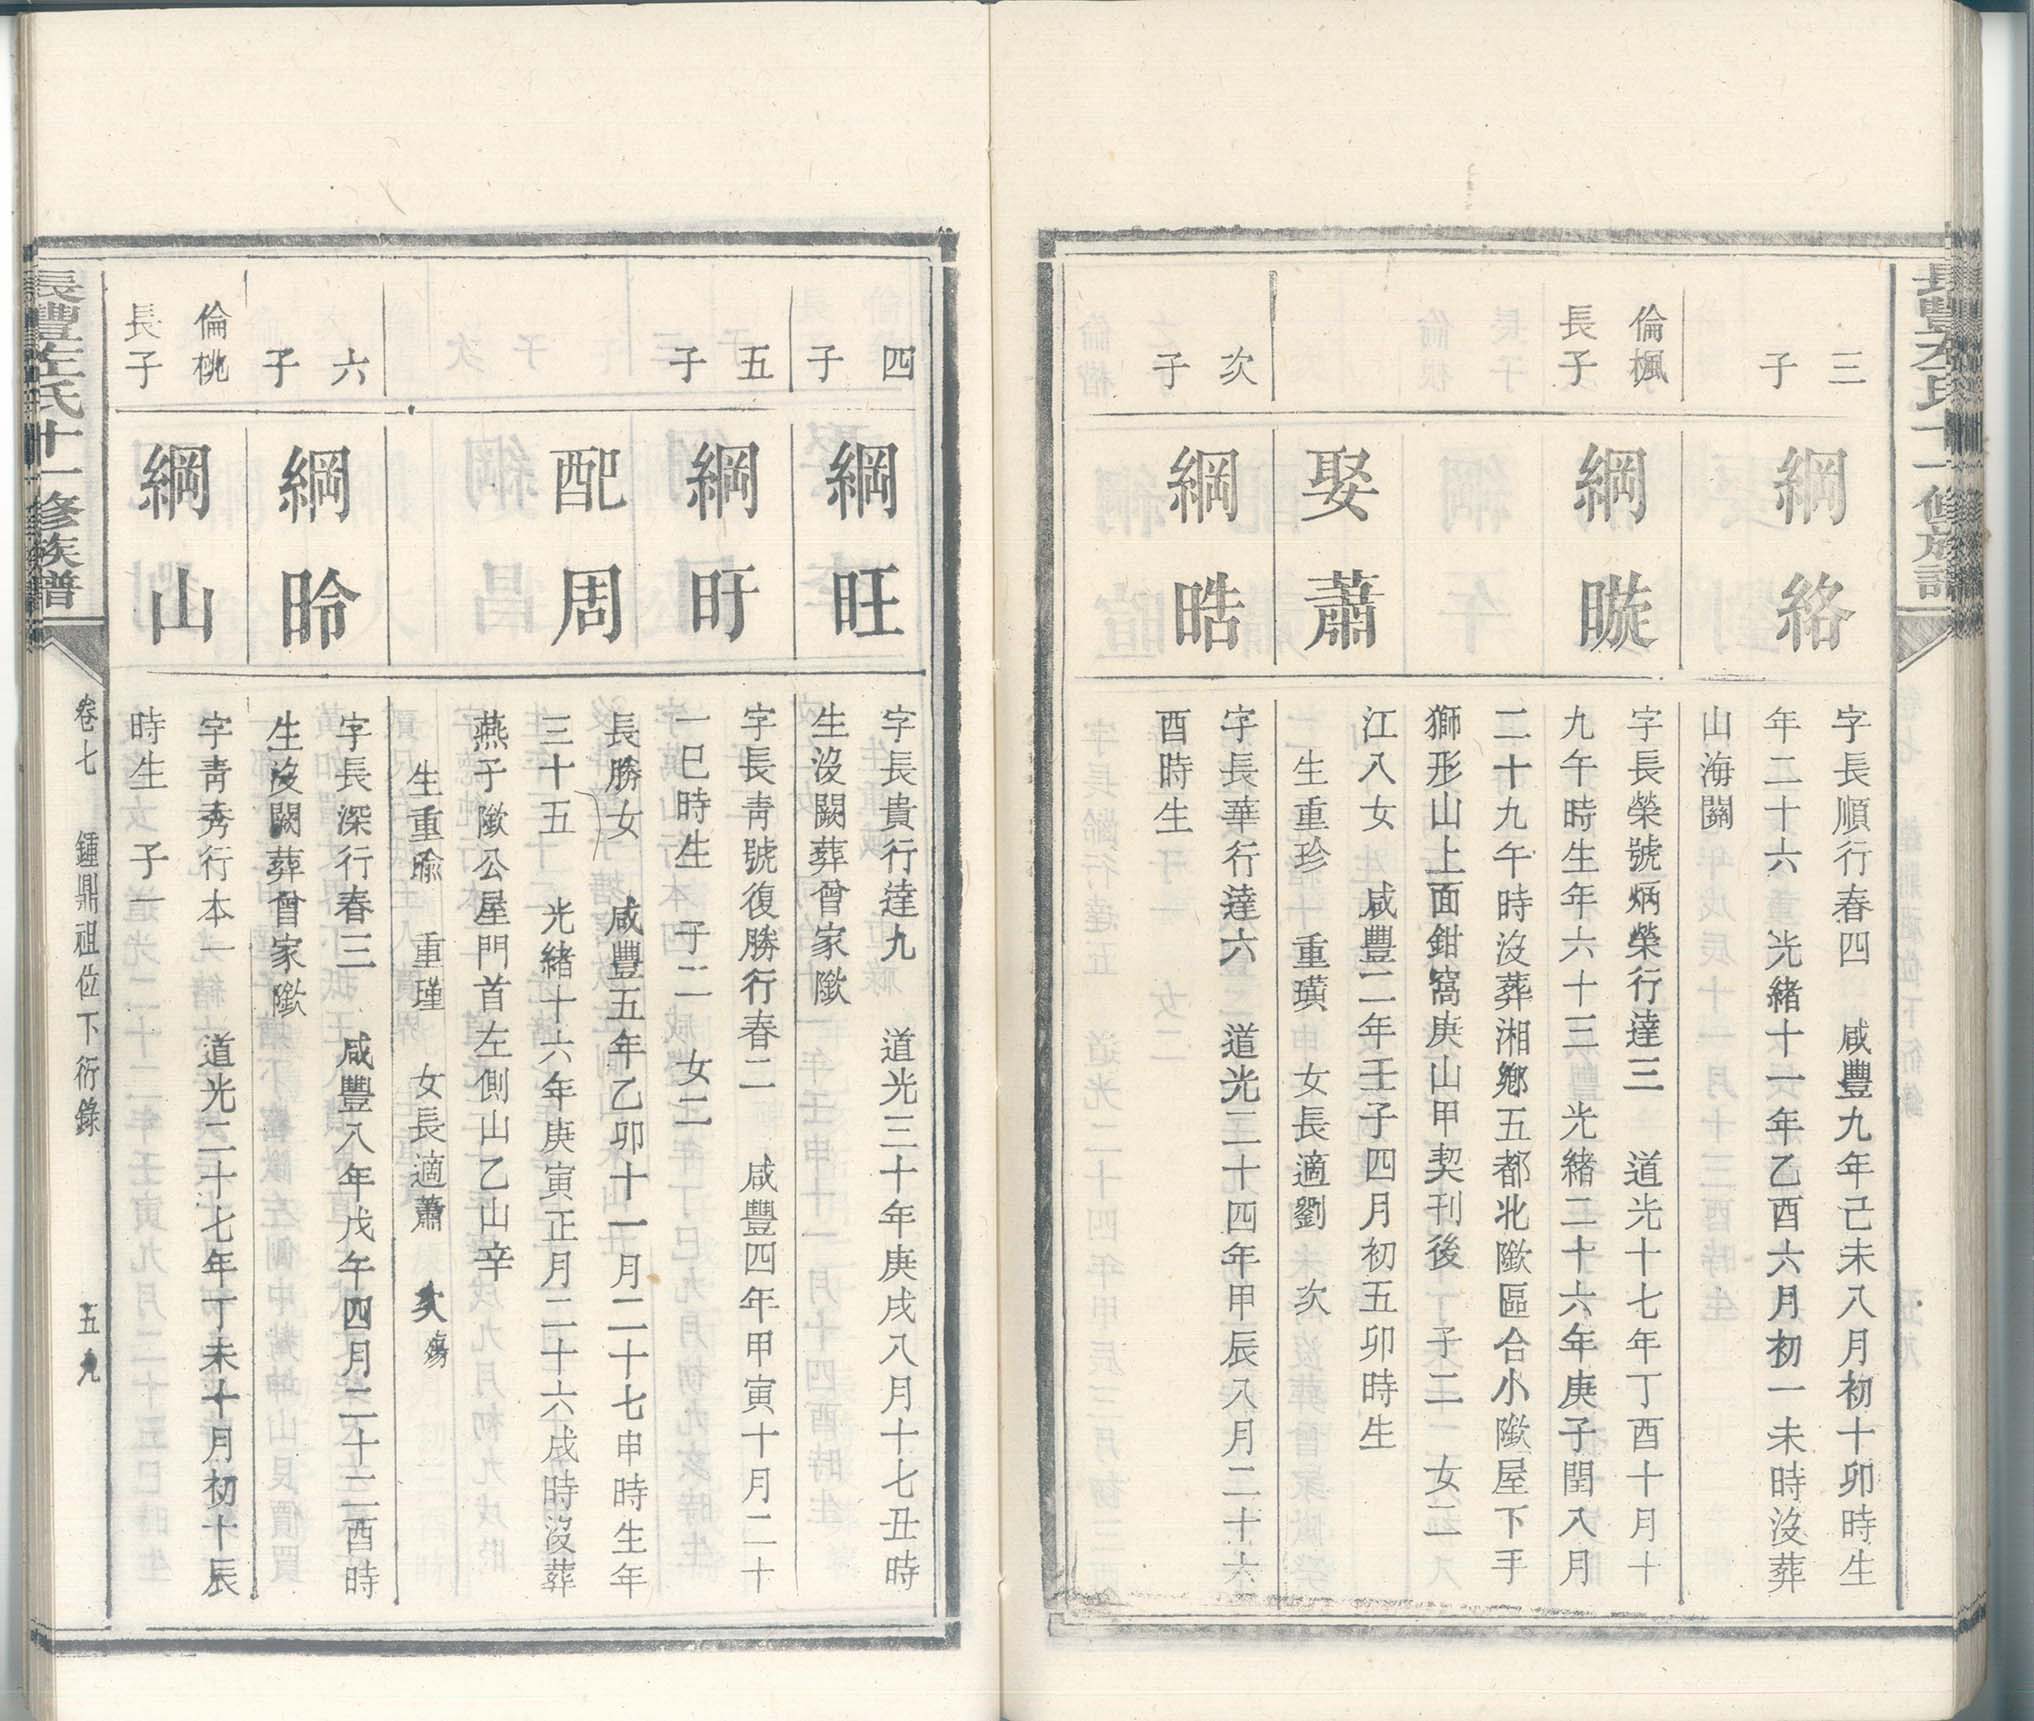 三
子
綱絡
字長順行春四　咸豐九年己未八月初十卯時生
年二十六　光緒十一年乙酉六月初一未時沒葬
山海關
倫楓
長子
綱暶
字長榮號炳榮行達三　道光十七年丁酉十月十
九午時生年六十三　光緒二十六年庚子閏八月
二十九午時沒葬湘鄉五都北歘區合小歘屋下手
獅形山上面鉗窩庚山甲契刊後　子二　女二
娶蕭
江入女　咸豐二年壬子四月初五卯時生
生重珍　重璜　女長適劉　次
次
子
綱晧
字長華行達六　道光二十四年甲辰八月二十六
酉時生
四
子
綱旺
字長貴行達九　道光三十年庚戌八月十七丑時
生沒闕葬曾家歘
五
子
綱盱
字長靑號復勝行春二　咸豐四年甲寅十月二十
一巳時生　子二　女二
配周
長勝女　咸豐五年乙卯十一月二十七申時生年
三十五　光緒十六年庚寅正月二十六戌時沒葬
燕子歘公屋門首左側山乙山辛
生重㻞　重瑾　女長適蕭　次殤
六
子
綱昤
字長深行春三　咸豐八年戊午四月二十二酉時
生沒闕葬曾家歘
倫桃
長子
綱山
字靑秀行本一　道光二十七年丁未十月初十辰
時生　子一
長豐左氏十一修族譜
卷七　鍾鼎祖位下衍錄　五九